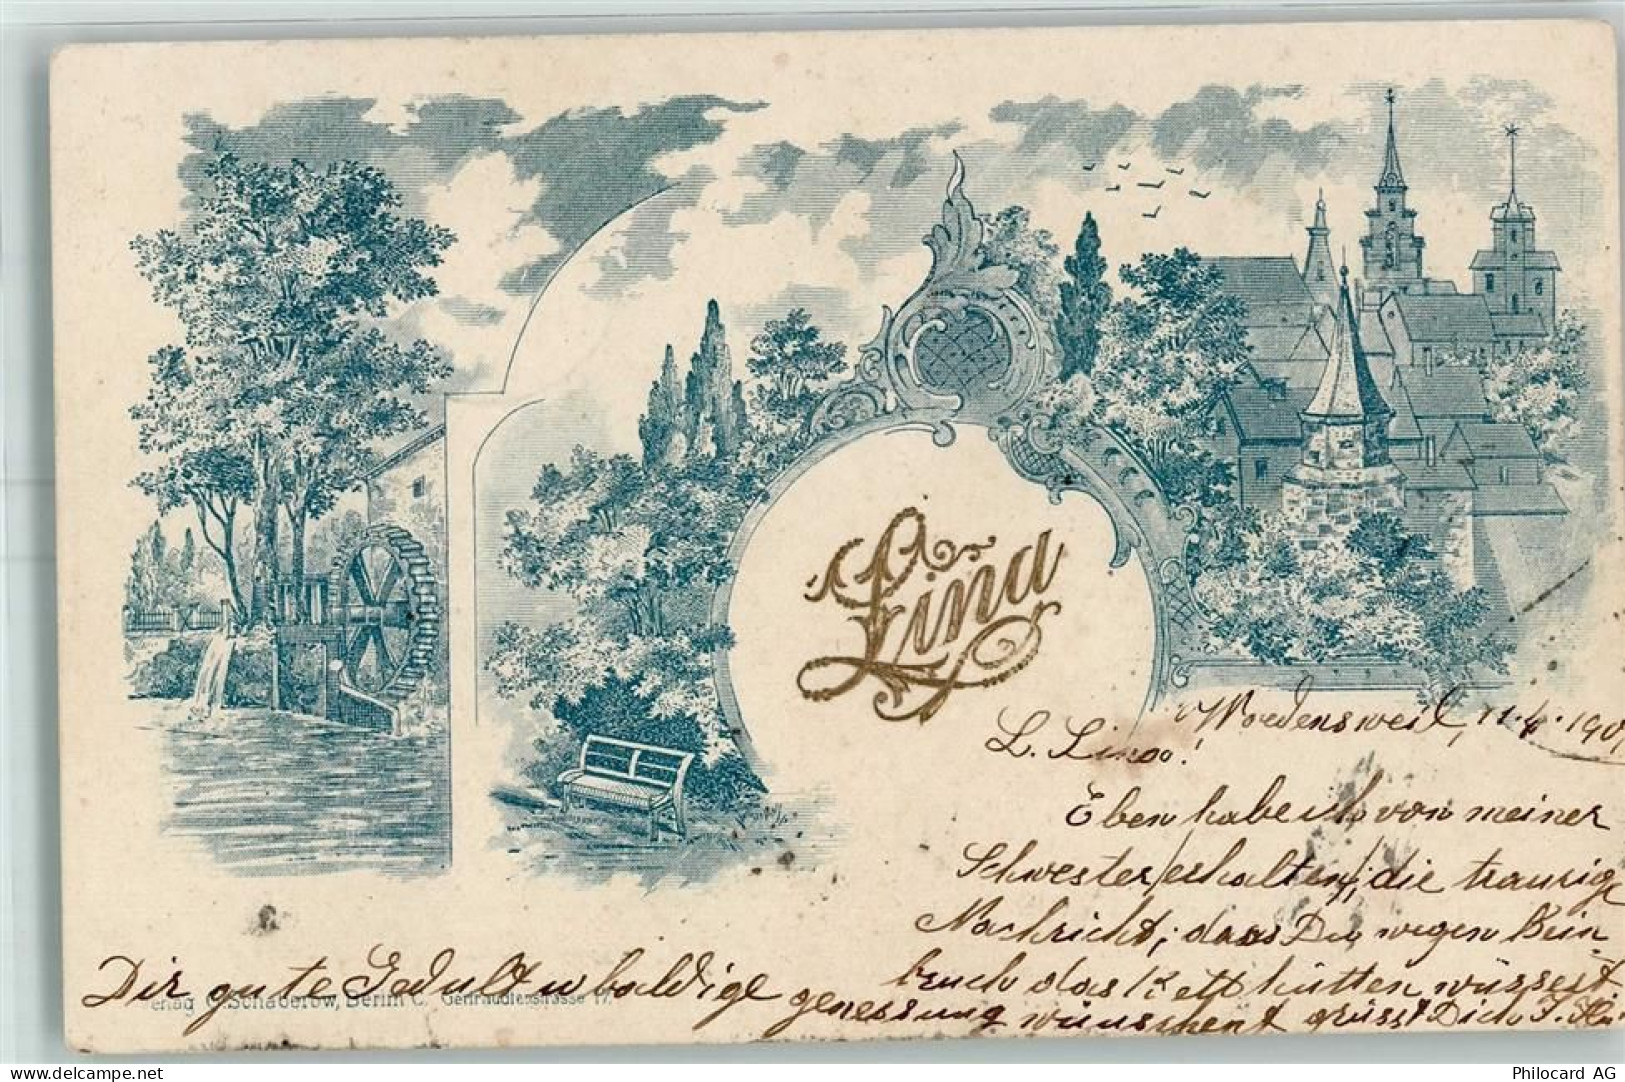 Lina
Woedensweil, 11.4.190
L. Lina!
Eben habe ich von meiner
Schwester erhalten, die traurige
Nachricht, dass Du wegen Bein
bruch das Bett hütten müssest
Dir gute Gedult u baldige genessung wünschent grüsst Dich J.
erlag C. Schaberow, Berlin C. Gertraudtenstrasse 17.
www.delcampe.net
Philocard AG